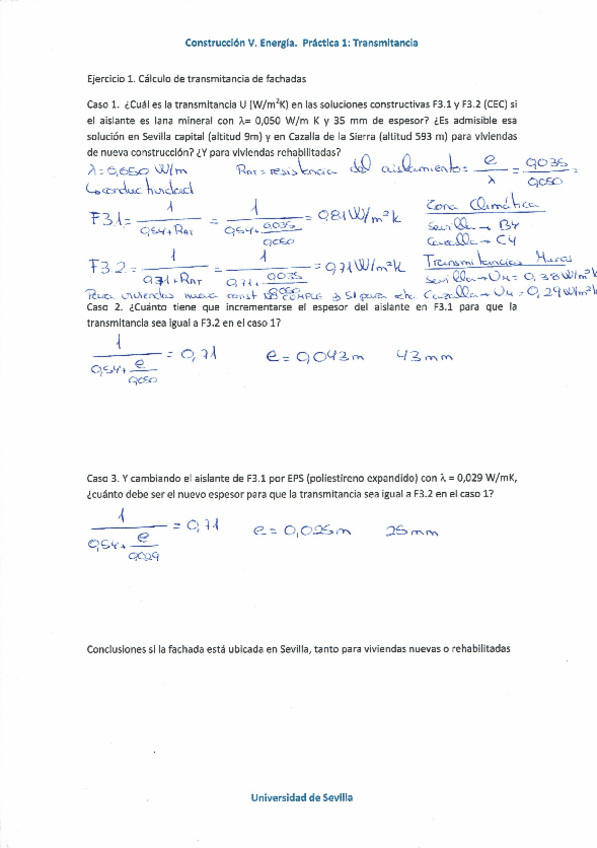 Construcción V. Energía. Práctica 1: Transmitancia
Ejercicio 1. Cálculo de transmitancia de fachadas
Caso 1. ¿Cuál es la transmitancia U (W/m²K) en las soluciones constructivas F3.1 y F3.2 (CEC) si
el aislante es lana mineral con λ= 0,050 W/m K y 35 mm de espesor? ¿Es admisible esa
solución en Sevilla capital (altitud 9m) y en Cazalla de la Sierra (altitud 593 m) para viviendas
de nueva construcción? ¿Y para viviendas rehabilitadas?
λ = 0,050 W/m RAT = resistencia del aislamiento = e/λ = 0,035/0,050 =
↳ conductividad
F3.1 = 1/(0,54 + RAT) = 1/(0,54 + 0,035/0,050) = 0,81 W/m²K
Zona Climática
Sevilla → B4
Cazalla → C4
F3.2 = 1/(0,71 + RAT) = 1/(0,71 + 0,035/0,050) = 0,71 W/m²K
Transmitancias Muros
Sevilla → UM = 0,38 W/m²K
Para viviendas nueva const NO CUMPLE y SI para Cazalla → UM = 0,29 W/m²K
Caso 2. ¿Cuánto tiene que incrementarse el espesor del aislante en F3.1 para que la
transmitancia sea igual a F3.2 en el caso 1?
1/(0,54 + e/0,050) = 0,71 e = 0,043 m 43 mm
Caso 3. Y cambiando el aislante de F3.1 por EPS (poliestireno expandido) con λ = 0,029 W/mK,
¿cuánto debe ser el nuevo espesor para que la transmitancia sea igual a F3.2 en el caso 1?
1/(0,54 + e/0,029) = 0,71 e = 0,025 m 25 mm
Conclusiones si la fachada está ubicada en Sevilla, tanto para viviendas nuevas o rehabilitadas
Universidad de Sevilla